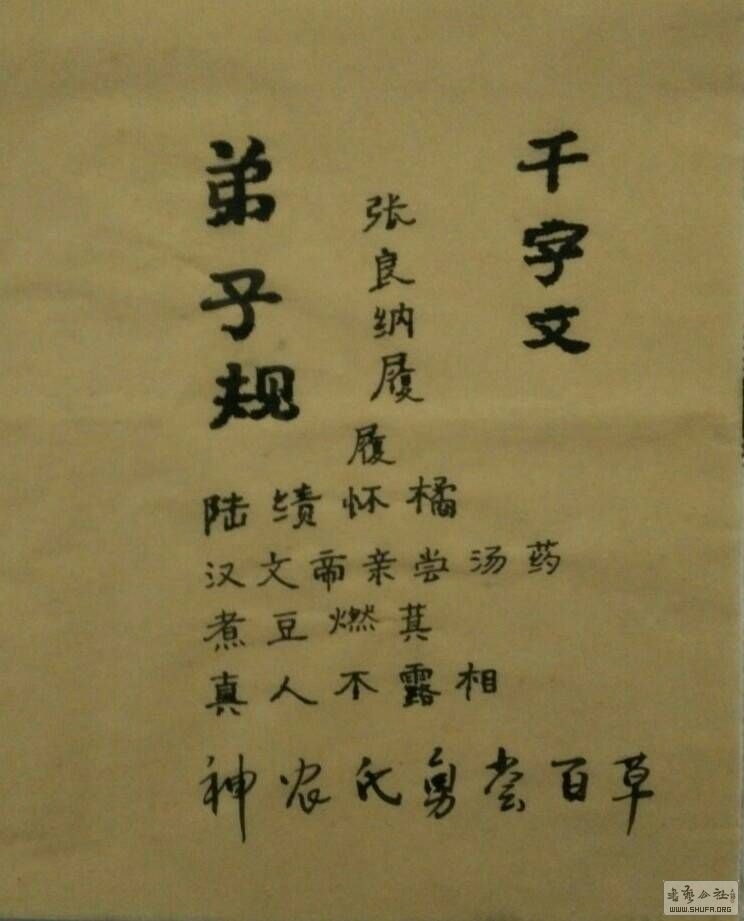 千字文
张良纳履
履
弟子规
陆绩怀橘
汉文帝亲尝汤药
煮豆燃萁
真人不露相
神农氏勇尝百草
书艺公社
WWW.SHUFA.ORG